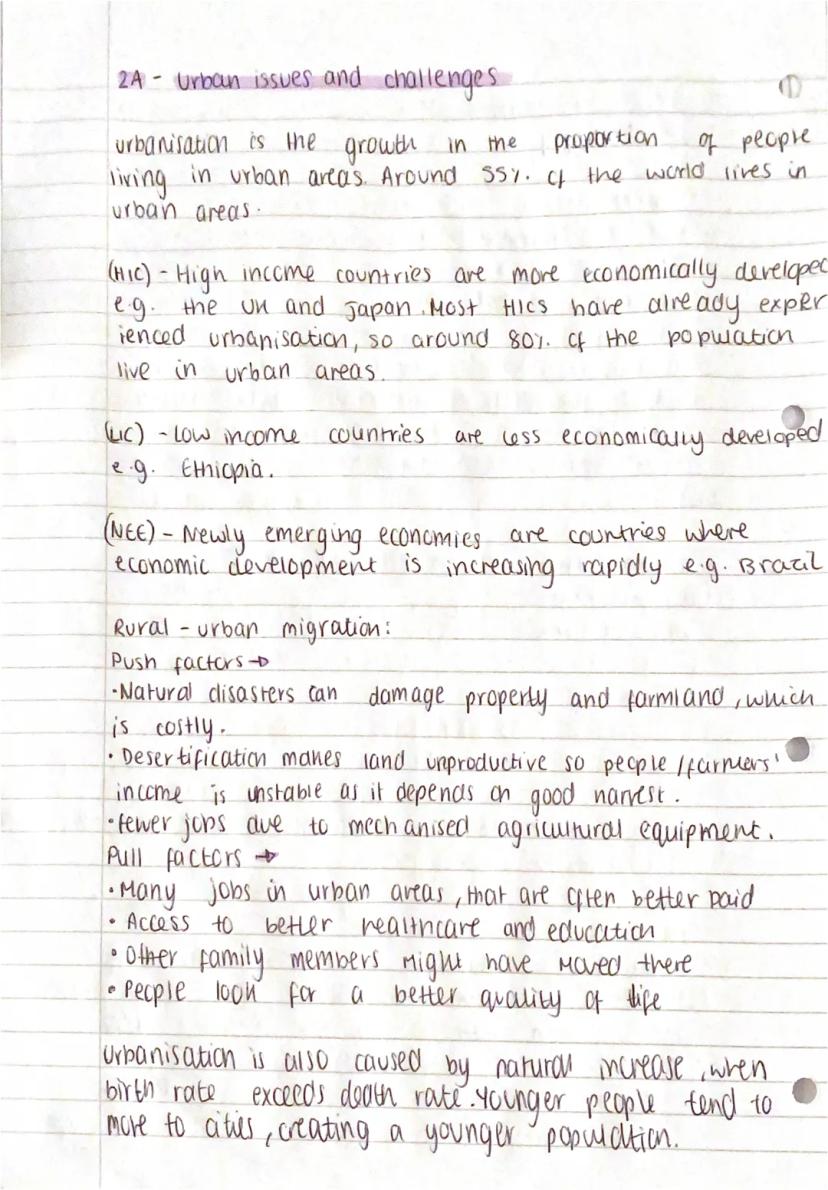 2A - Urban issues and challenges
(1)
urbanisation is the growth in the proportion of people
living in urban areas. Around 55%. of the world lives in
urban areas.
(HIC) - High income countries are more economically developed
e.g. the UK and Japan. Most HICs have already exper
ienced urbanisation, so around 80%. of the population
live in urban areas.
(LIC) - Low income countries are less economically developed
e.g. Ethiopia.
(NEE) - Newly emerging economies are countries where
economic development is increasing rapidly e.g. Brazil
Rural - urban migration:
Push factors →
• Natural disasters can damage property and farmland, which
is costly.
• Desertification makes land unproductive so people / farmers'
income is unstable as it depends on good harvest.
• fewer jobs due to mechanised agricultural equipment.
Pull factors →
• Many jobs in urban areas, that are often better paid
• Access to better healthcare and education
• Other family members might have moved there
• People look for a better quality of life
Urbanisation is also caused by natural increase, when
birth rate exceeds death rate. Younger people tend to
move to cities, creating a younger population.